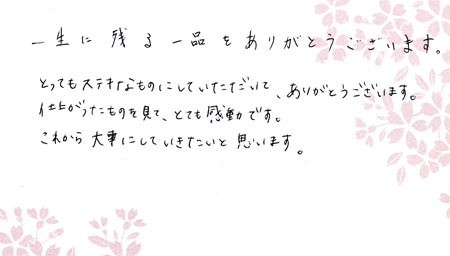 一生に残る一品をありがとうございます。
とってもステキなものにしていただいて、ありがとうございます。
仕上がったものを見て、とても感動です。
これから大事にしていきたいと思います。